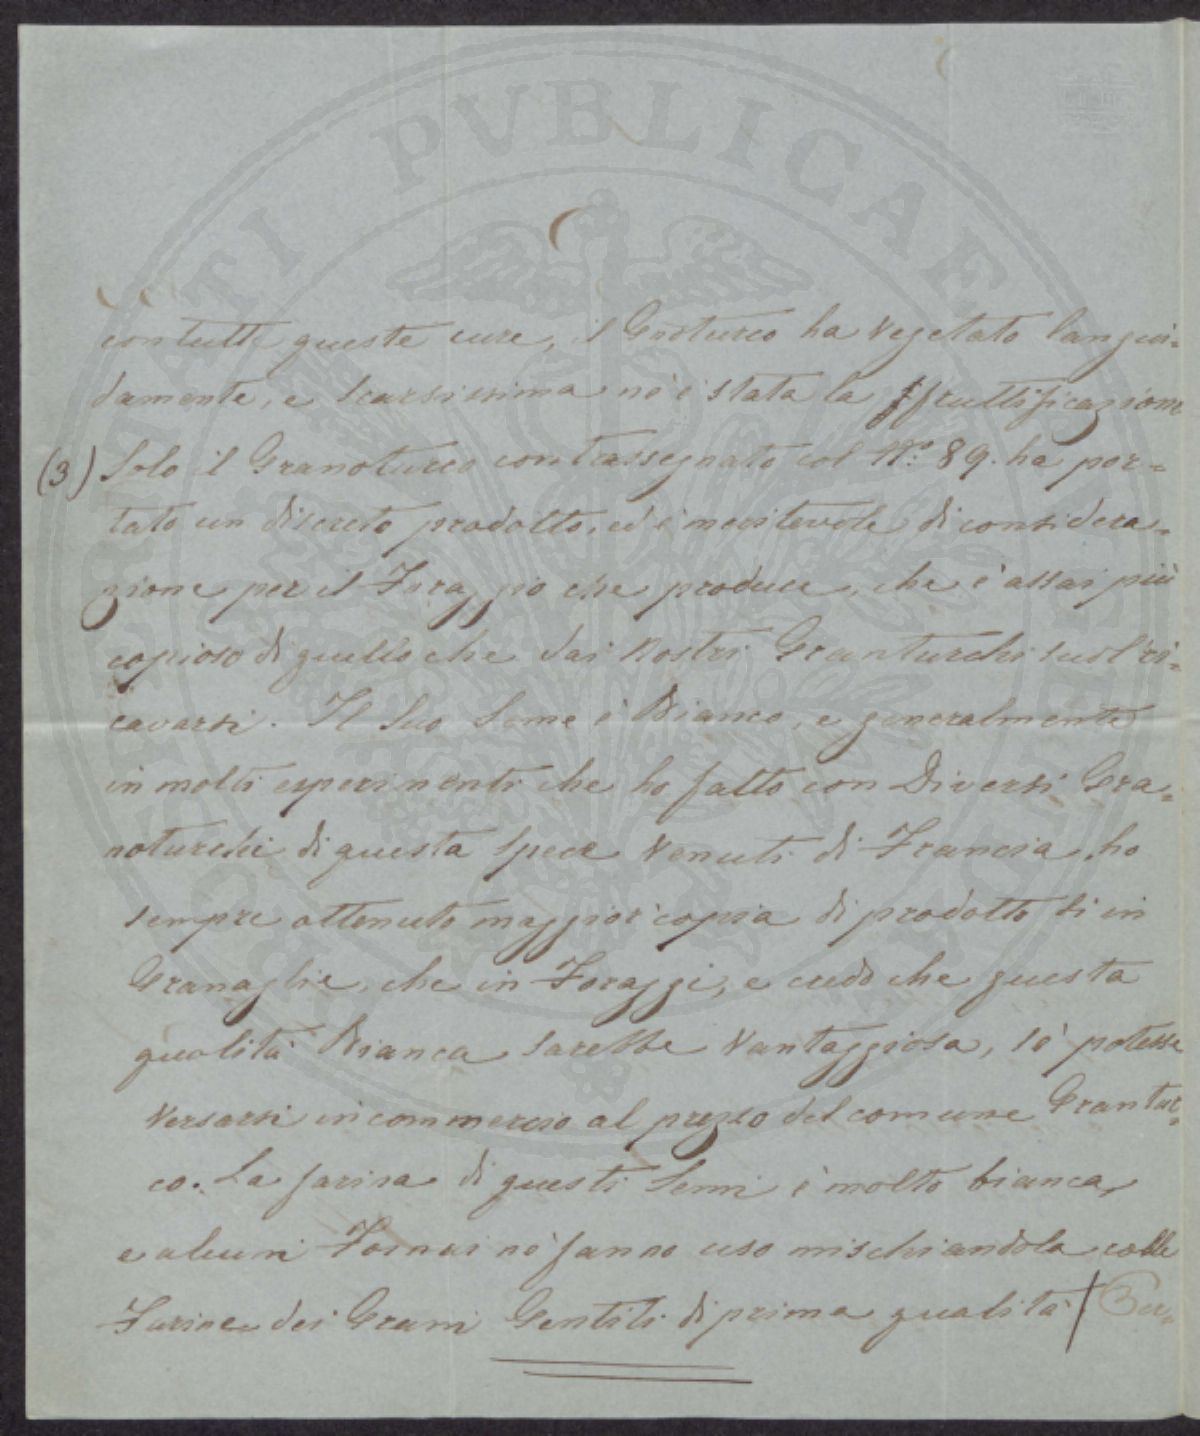 con tutte queste cure, il Granturco ha vegetato langui=
damente, e Scarsissima nè è stata la fruttificazione
(3) Solo il Granoturco contrassegnato col Nº. 89. ha por=
tato un discreto prodotto, ed è meritevole di considera=
zione per il Foraggio che produce, che è assai più
copioso di quello che dai Nostri Granturchi suol ri=
cavarsi. Il Suo Seme è Bianco, e generalmente
in molti esperimenti che ho fatto con Diversi Gra=
noturchi di questa Specie Venuti di Francia, ho
sempre ottenuto maggior copia di prodotto sì in
Granaglie, che in Foraggi, e credo che questa
qualità Bianca sarebbe Vantaggiosa, sè potesse
Versarsi in commercio al prezzo del comune Grantur=
co. La farina di questi Semi è molto bianca,
e alcuni Fornai nè fanno uso mischiandola colle
Farine dei Grani Gentili di prima qualità / Per=
PVBLICAE